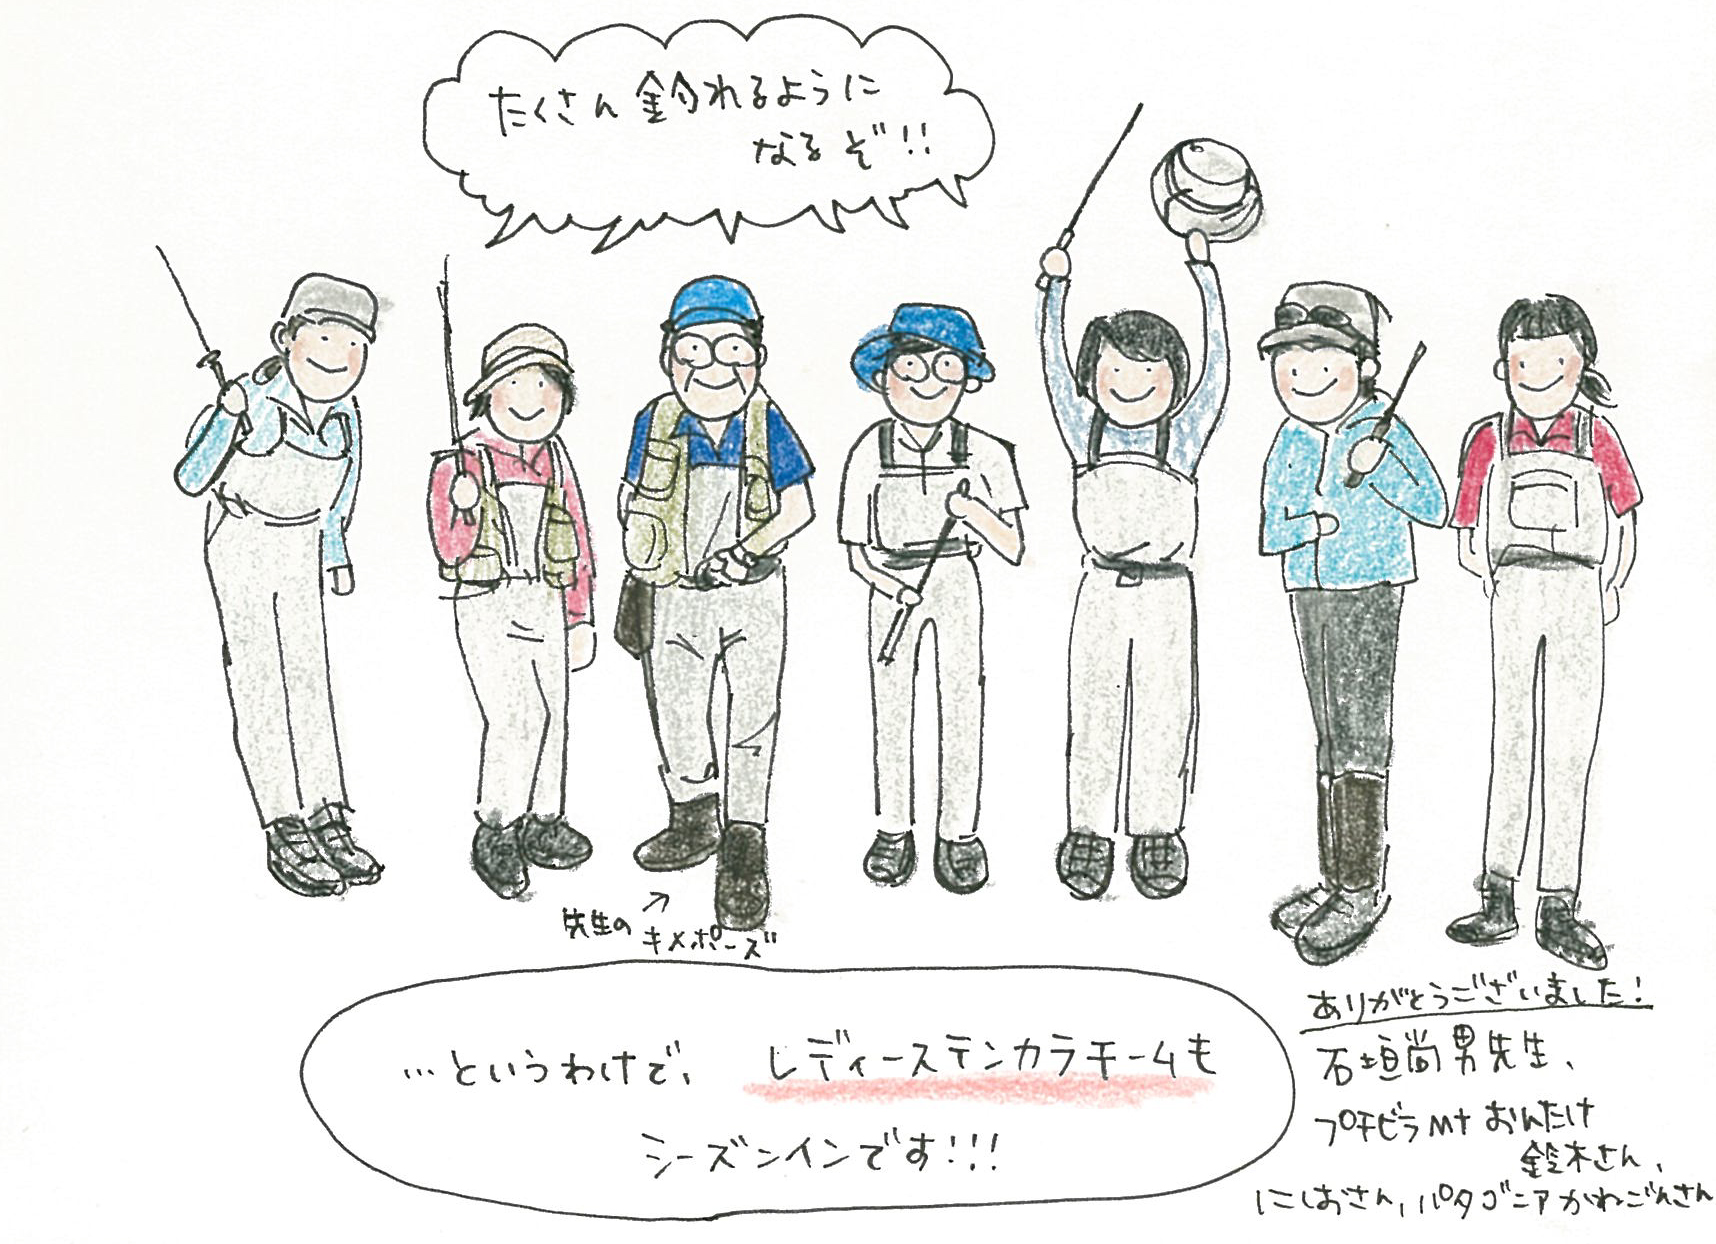 たくさん釣れるように
なるぞ!!
先生の
キメポーズ
…というわけで、レディーステンカラチームも
シーズンインです!!!
ありがとうございました!
石垣尚男先生、
プチビラMt おんたけ
鈴木さん、
にしおさん、パタゴニアかねごんさん